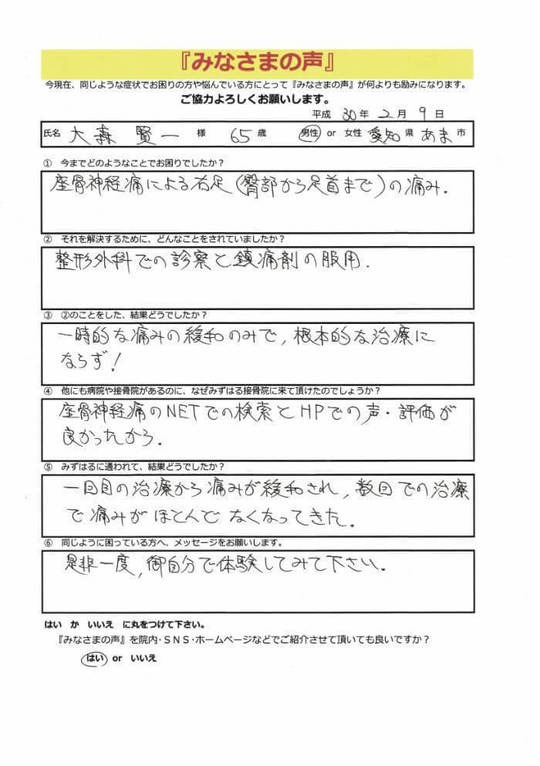 『みなさまの声』
今現在、同じような症状でお困りの方や悩んでいる方にとって『みなさまの声』が何よりも励みになります。
ご協力よろしくお願いします。
平成 30 年 2 月 9 日
氏名 大森 賢一 様 65 歳 男性 or 女性 愛知 県 あま 市
① 今までどのようなことでお困りでしたか？
座骨神経痛による右足（臀部から足首まで）の痛み.
② それを解決するために、どんなことをされていましたか？
整形外科での診察と鎮痛剤の服用.
③ ②のことをした、結果どうでしたか？
一時的な痛みの緩和のみで, 根本的な治療に
ならず!
④ 他にも病院や接骨院があるのに、なぜみずはる接骨院に来て頂けたのでしょうか？
座骨神経痛のNETでの検索とHPでの声・評価が
良かったから.
⑤ みずはるに通われて、結果どうでしたか？
一回目の治療から痛みが緩和され, 数回での治療
で痛みがほとんどなくなってきた.
⑥ 同じように困っている方へ、メッセージをお願いします。
是非一度, 御自分で体験してみて下さい.
はい か いいえ に丸をつけて下さい。
『みなさまの声』を院内・ＳＮＳ・ホームページなどでご紹介させて頂いても良いですか？
はい or いいえ